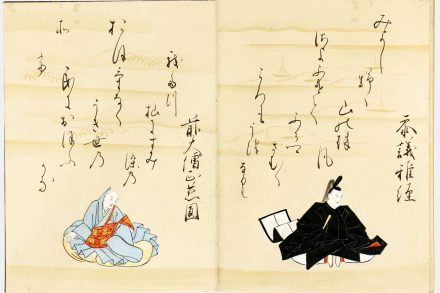 参議雅経
みよし
野ゝ
山の秋
風
さよふけて
ふる
さむく
ころもうつ
なり
前大僧正慈円
おほけなく
うき世の
民におほふ
かな
我たつ
杣にすみ
染の